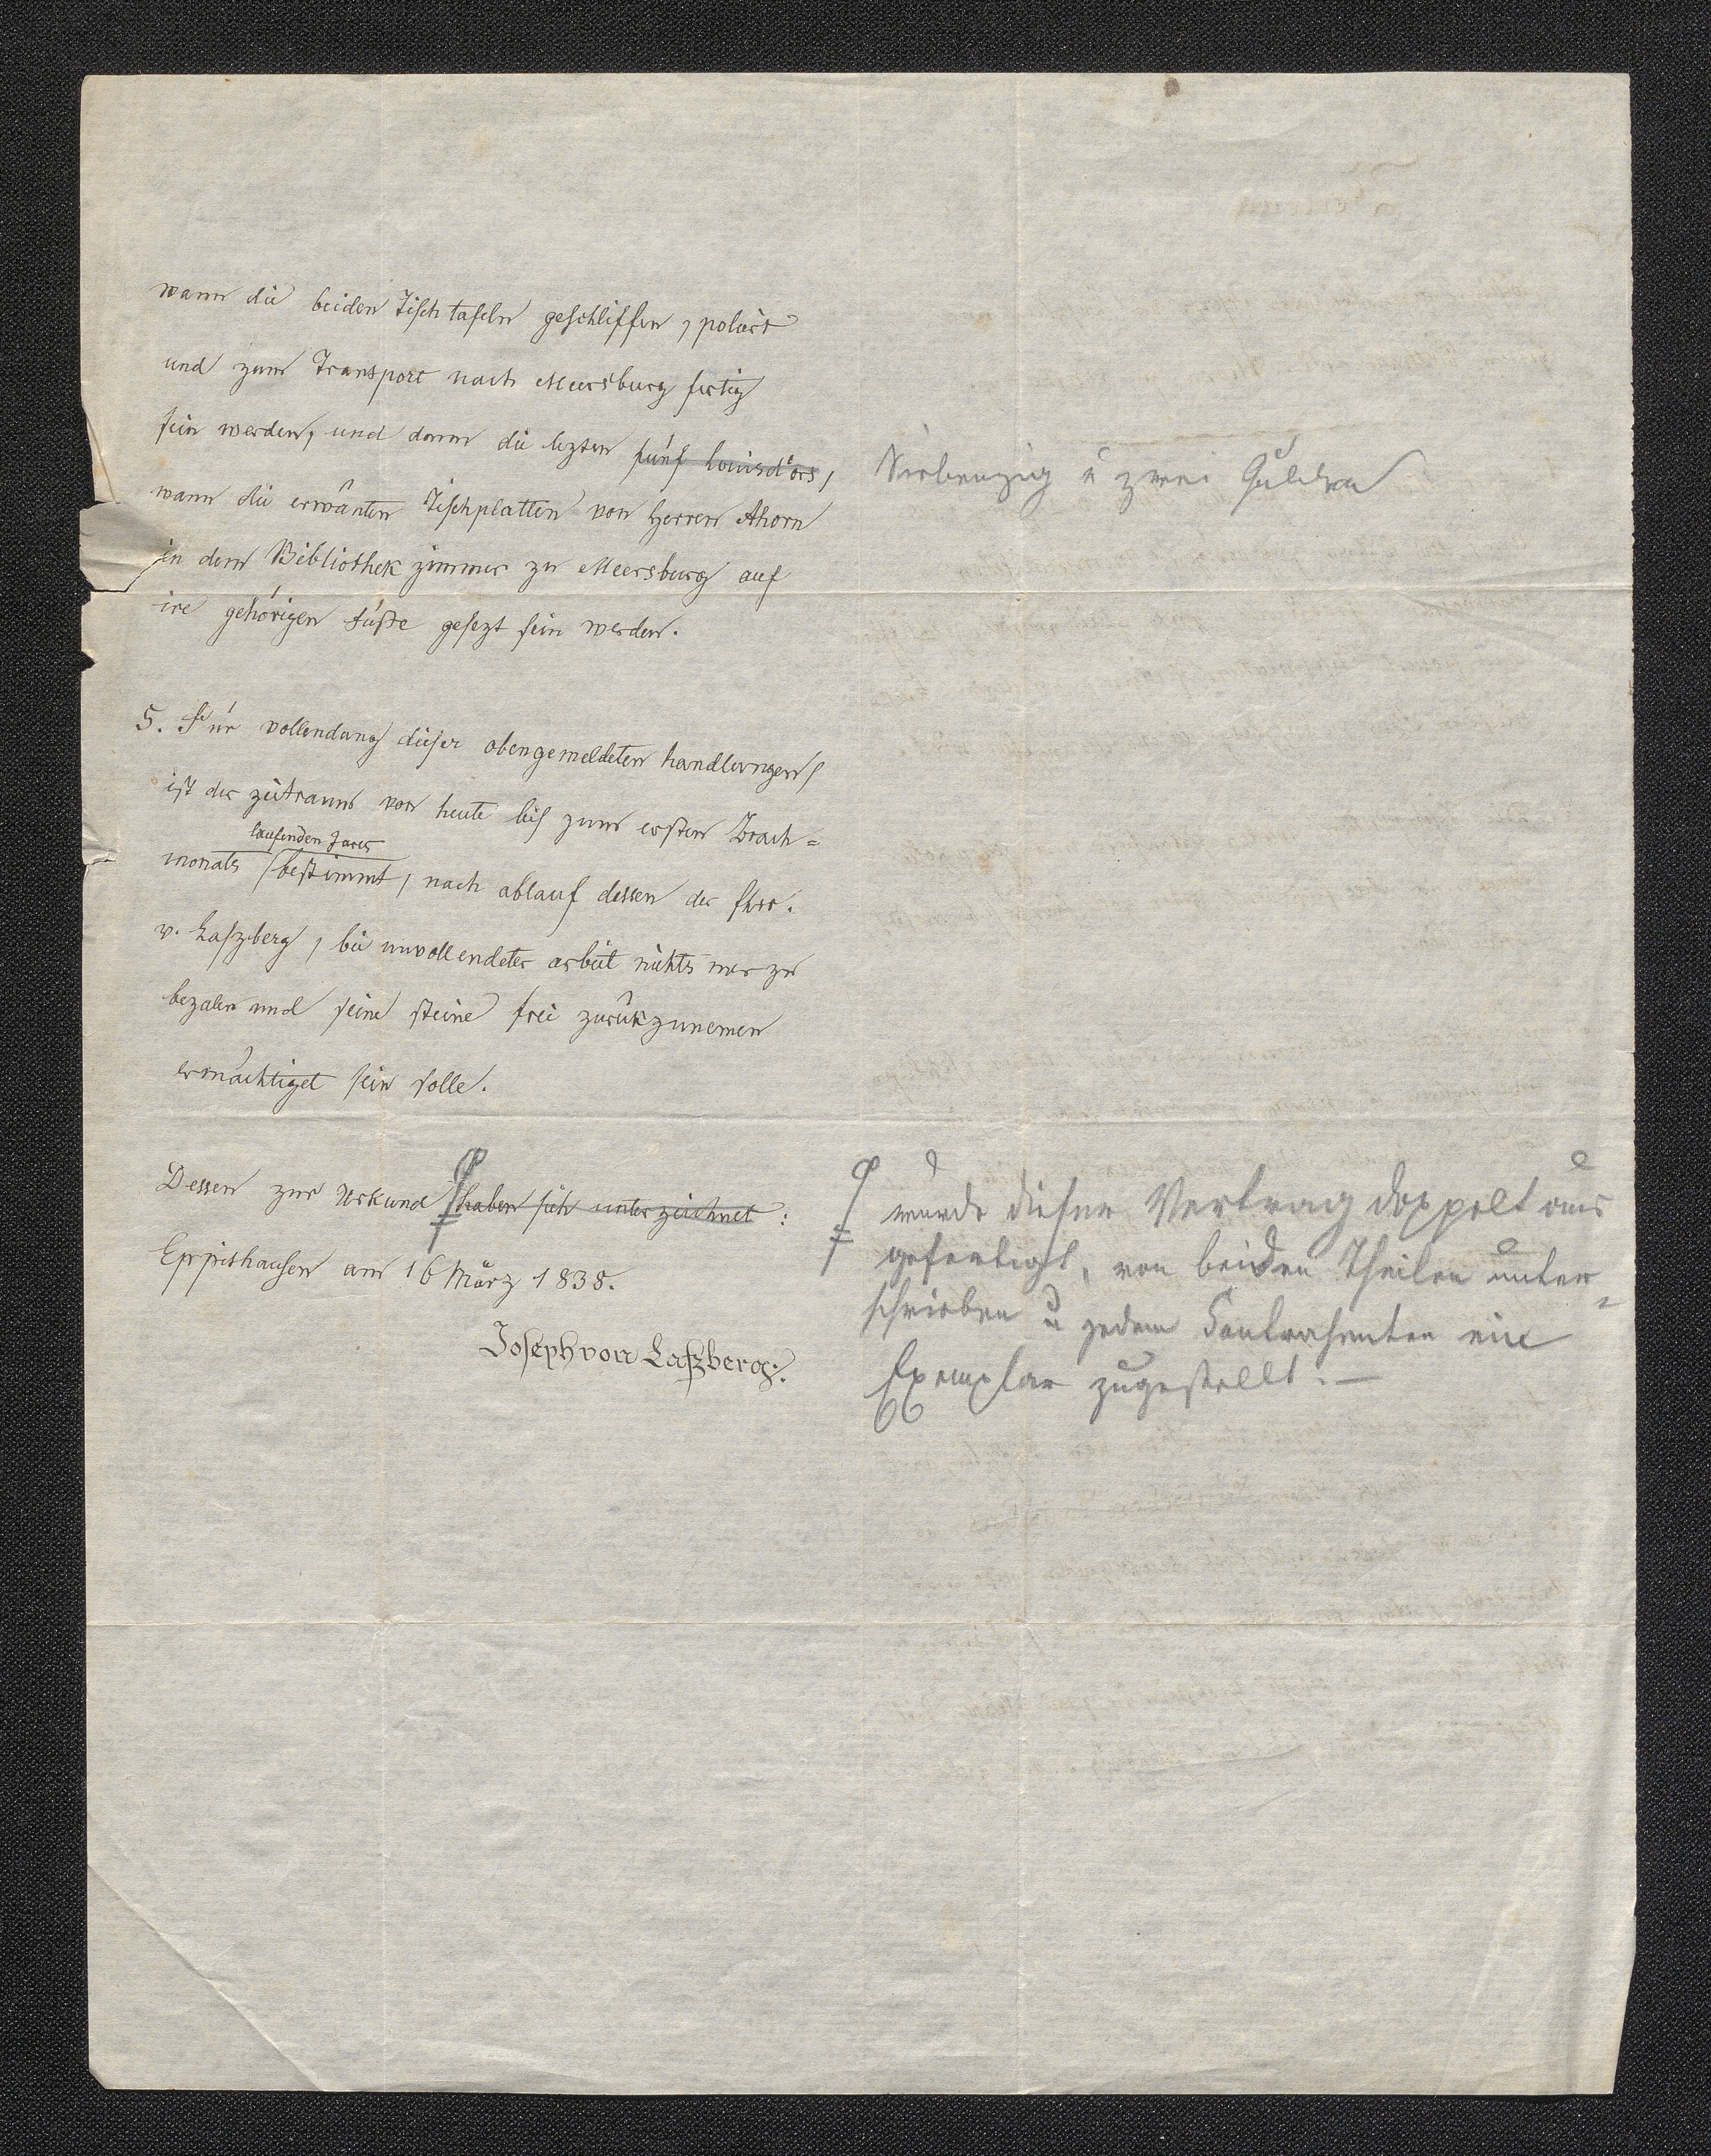 wann die beiden Tischtafeln geschliffen, poliert
und zum Transport nach Meersburg fertig
sein werden, und dann die lezten fünf Louisd'ors,
wann die erwänten Tischplatten von Herren Ahorn
in dem Bibliothek zimmer zu Meersburg auf
ire gehörigen füße gesezt sein werden.
5. Für vollendung dieser obengemeldeten handlungen
ist der zeitraum von heute bis zum ersten Brach=
laufenden Jares
monats bestimmt, nach ablauf dessen der Fhrr.
v. Laszberg, bei unvollendeter arbeit nichts mer zu
bezalen und seine steine frei zurükzunemen
ermächtiget sein solle.
Dessen zur Urkund haben sich unterzeichnet:
Eppishausen am 16 März 1838.
Joseph von Laßberg.
Siebenzig u zwei Gulden
wurde dieser Vertrag doppelt aus
gefertigt, von beiden Theilen unter=
schrieben u jedem Contrahenten ein
Exemplar zugestellt. —